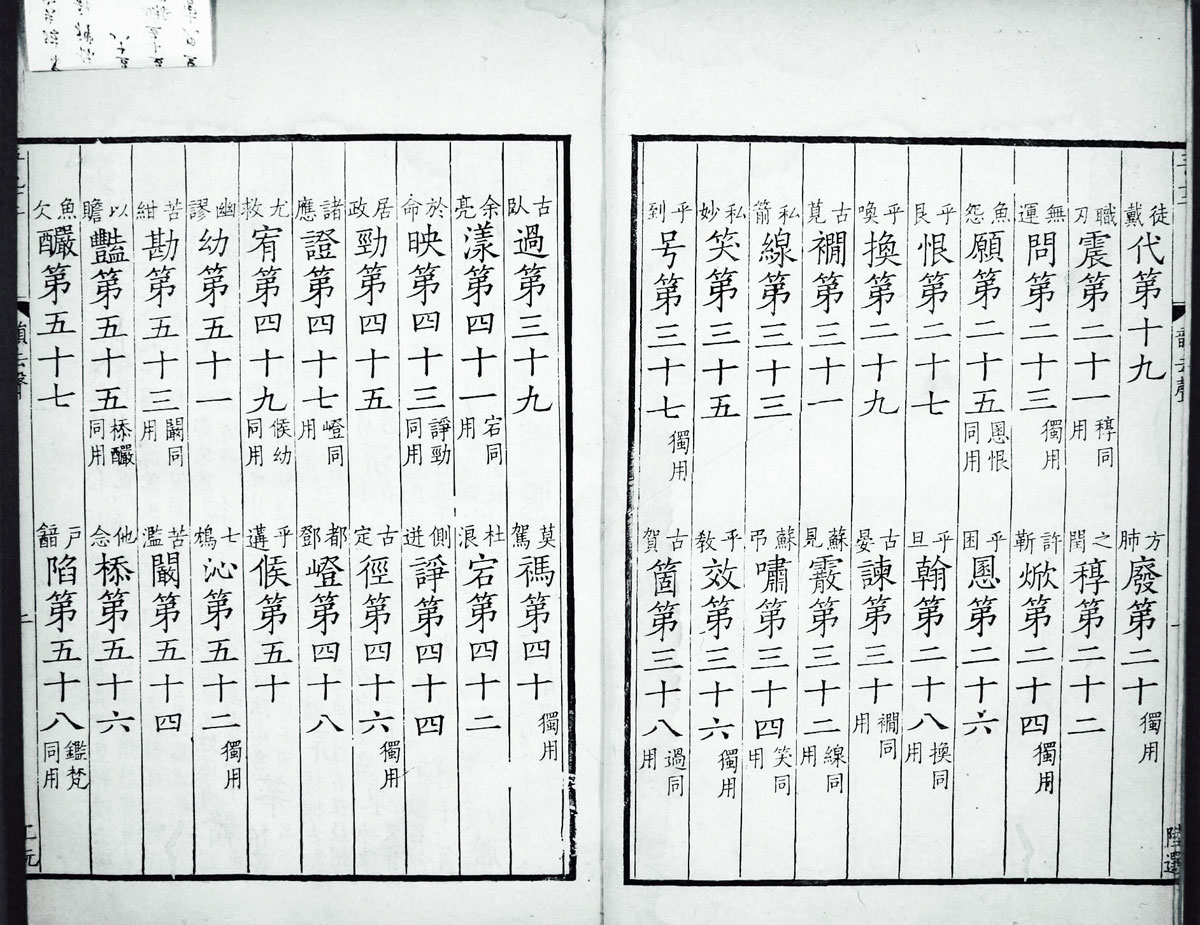 韻去聲 一 陸選
徒戴代第十九 方肺廢第二十獨用
職刃震第二十一稕同用 之閏稕第二十二
無運問第二十三獨用 許靳焮第二十四獨用
魚怨願第二十五慁恨同用 乎困慁第二十六
乎艮恨第二十七 乎旦翰第二十八換同用
乎喚換第二十九 古晏諫第三十襉同用
古莧襉第三十一 蘇見霰第三十二線同用
私箭線第三十三 蘇弔嘯第三十四笑同用
私妙笑第三十五 乎教效第三十六獨用
乎到号第三十七獨用 古賀箇第三十八過同用
古臥過第三十九 莫駕禡第四十獨用
余亮漾第四十一宕同用 杜浪宕第四十二
於命映第四十三諍勁同用 側迸諍第四十四
居政勁第四十五 古定徑第四十六獨用
諸應證第四十七嶝同用 都鄧嶝第四十八
尤救宥第四十九候幼同用 乎遘候第五十
幽謬幼第五十一 七鴆沁第五十二獨用
苦紺勘第五十三闞同用 苦濫闞第五十四
以贍豔第五十五㮇釅同用 他念㮇第五十六
魚欠釅第五十七 戶韽陷第五十八鑑梵同用
韻去聲 二